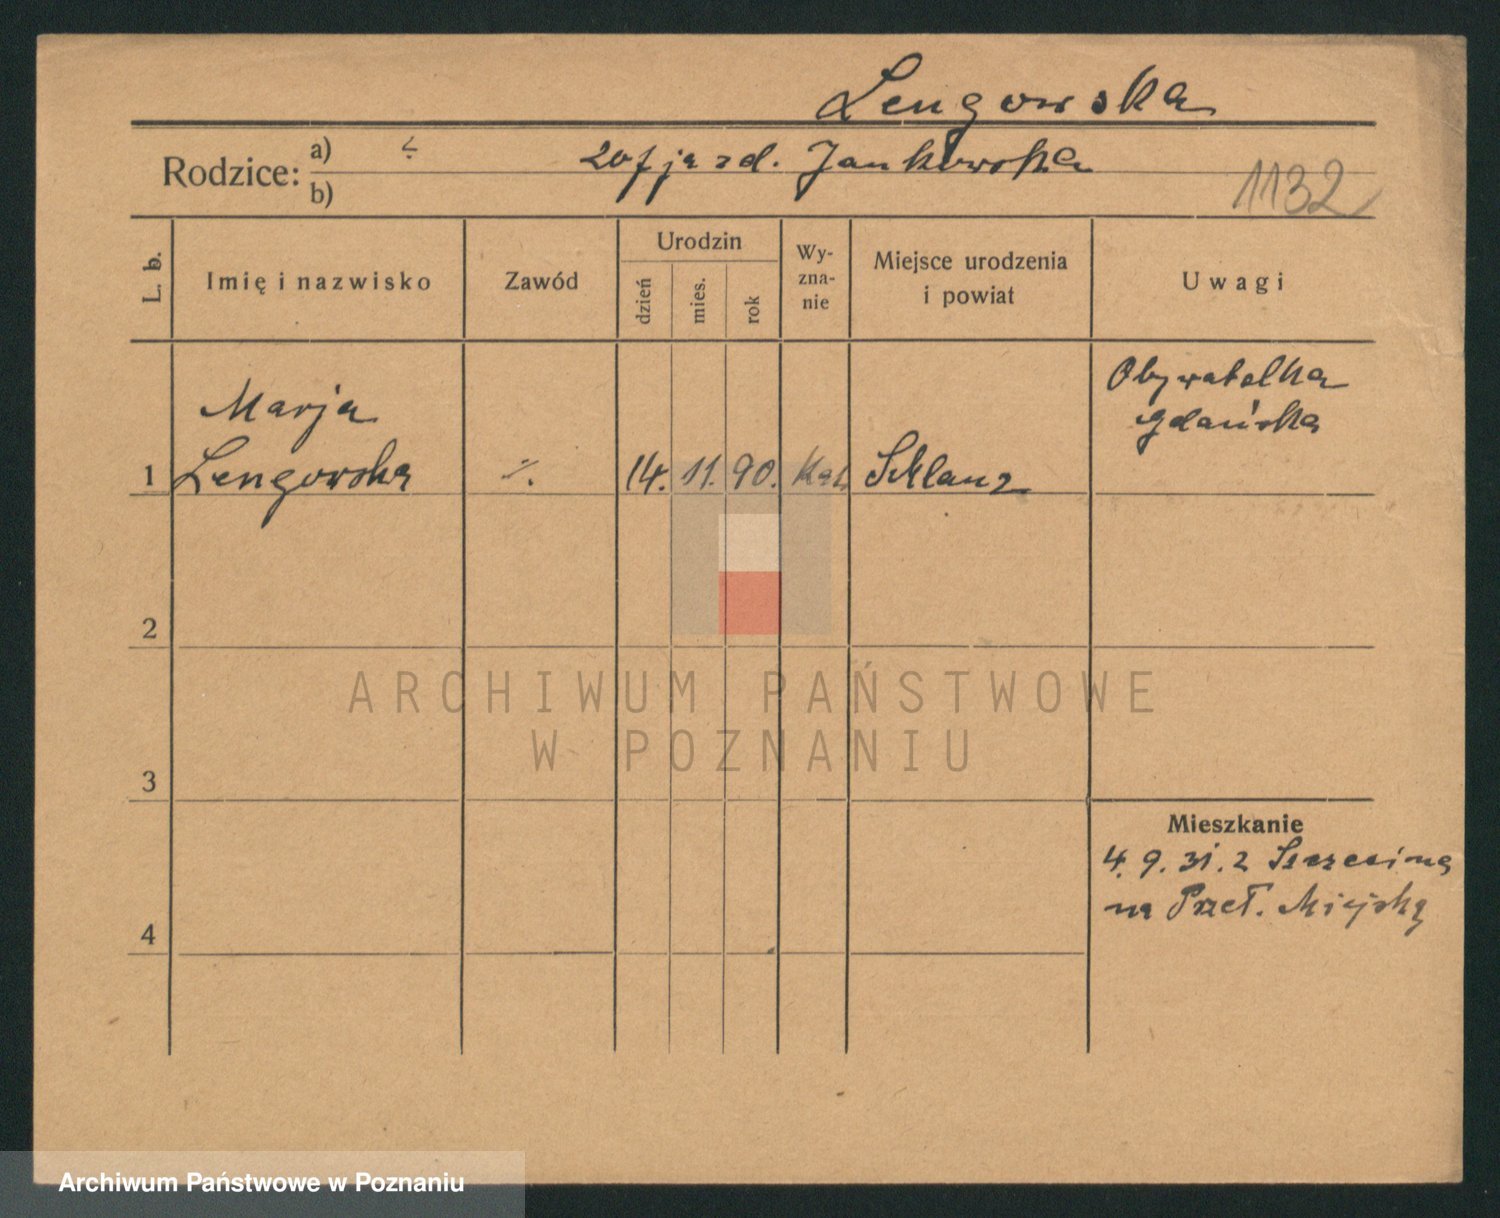 Lengowska
Rodzice: a) b)
Jankowska
1132
L. b.
Imię i nazwisko
Zawód
Urodzin
dzień
mies.
rok
Wy-
zna-
nie
Miejsce urodzenia
i powiat
Uwagi
Obywatelka
gdańska
Marja
1 Lengowska ·/. 14. 11. 90. Kat.
2
ARCHIWUM PAŃSTWOWE
W POZNANIU
3
Mieszkanie
4. 9. 31. z Szczecina
na Przeł. Miejską
4
Archiwum Państwowe w Poznaniu